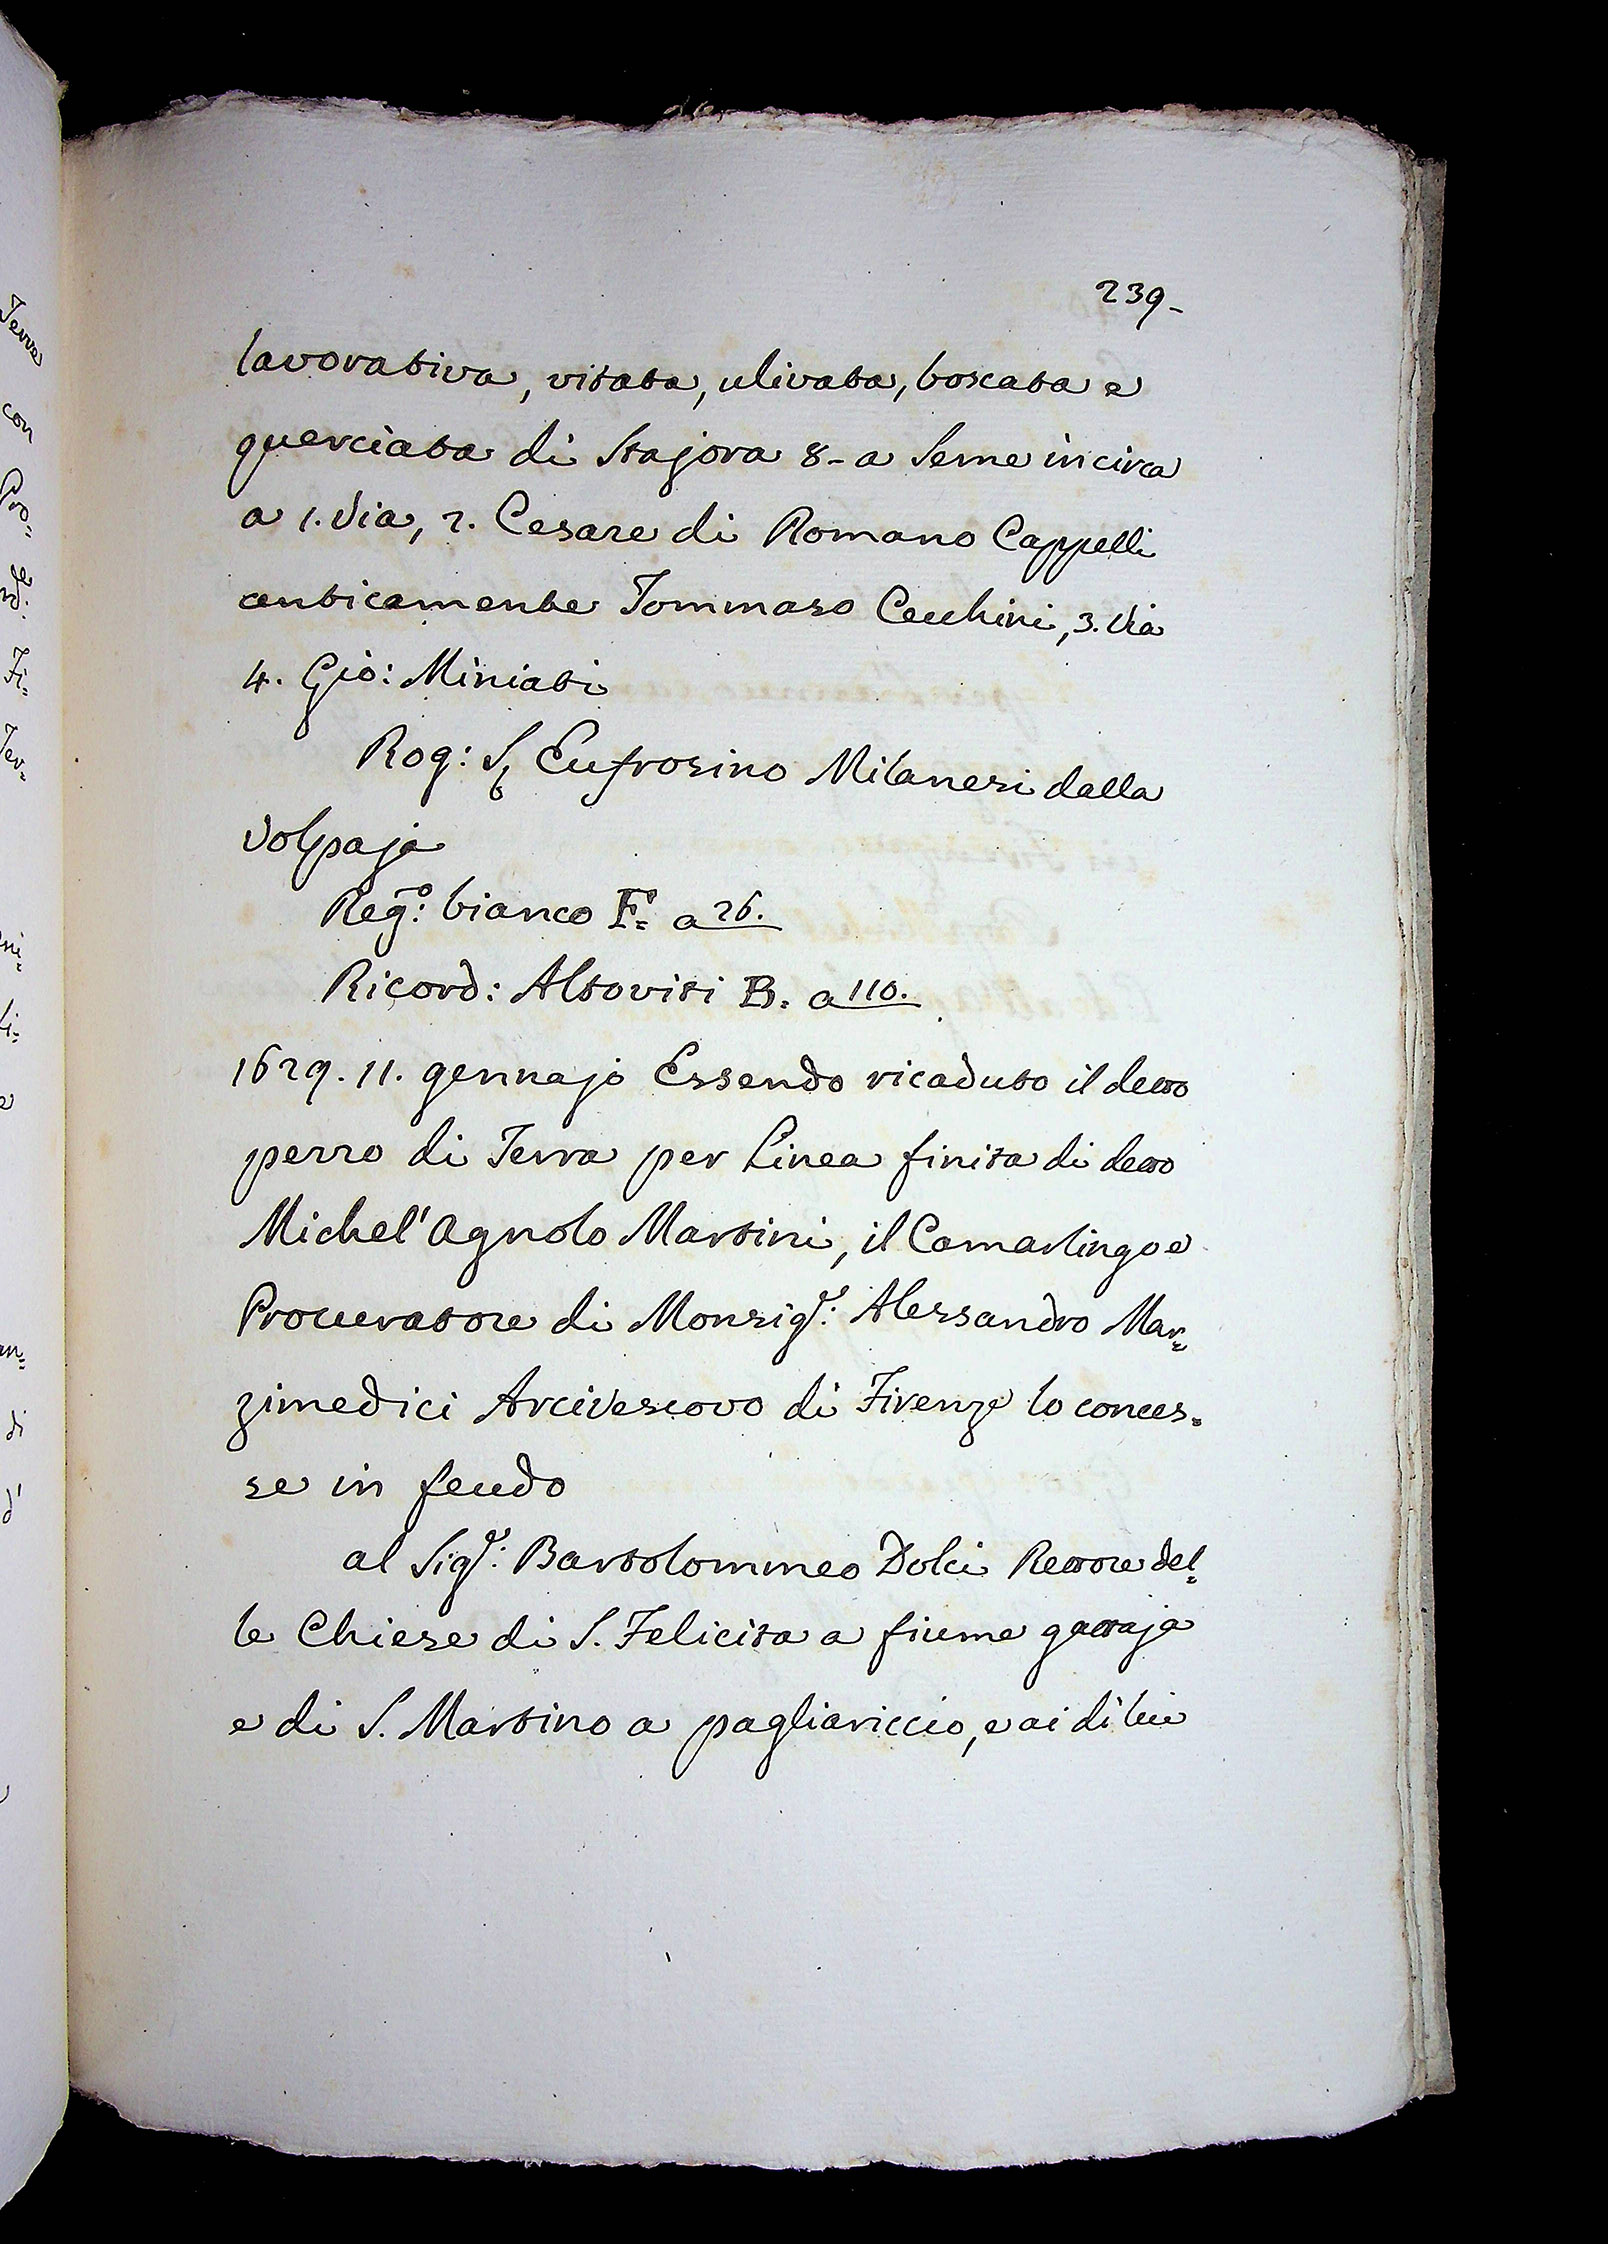 239-
lavorativa, vitata, ulivata, boscata e
querciata di Stajora 8- a Seme in circa
a 1. Via, 2. Cesare di Romano Cappelli
anticamente Tommaso Cecchini, 3. Via
4. Gio: Miniati
Rog: S. Eufrosino Milanesi dalla
Volpaja
Reg.º: bianco F= a 26.
Ricord: Altoviti B= a 110.
1629. 11. gennajo Essendo ricaduto il detto
pezzo di Terra per Linea finita di detto
Michel' Agnolo Martini, il Camarlingo e
Procuratore di Monsig.r: Alessandro Mar=
zimedici Arcivescovo di Firenze lo conces=
se in feudo
al Sig.r: Bartolommeo Dolci Rettore del=
le Chiese di S. Felicita a fiume gattaja
e di S. Martino a pagliariccio, e ai di lui
Terra
con
Pro=
Fi=
Ter=
ni=
li=
e
an=
di
d'